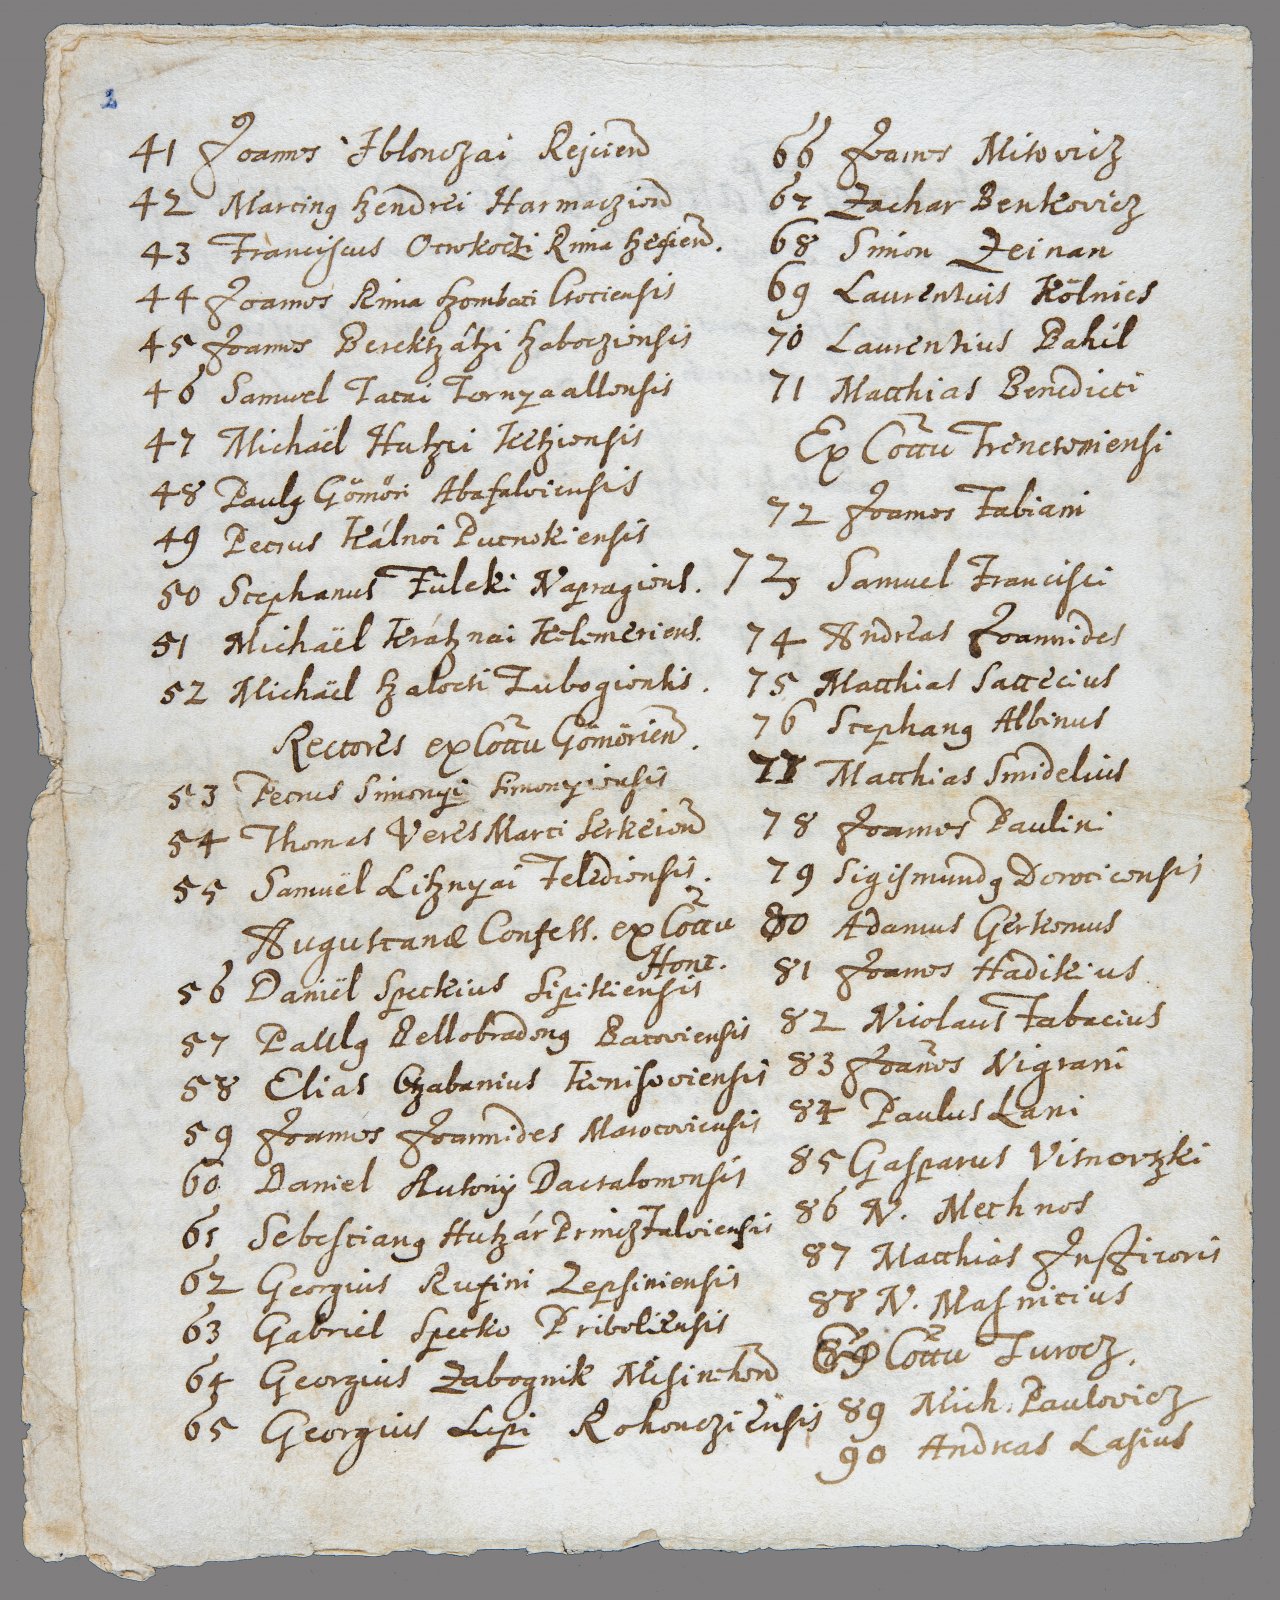 2
41 Joannes Iblonczai Rejcien̄
42 Marting Szendrei Harmaczien̄
43 Franciscus Otrokoczi Rima Szecsien̄.
44 Joannes Rima Szombati Csociensis
45 Joannes Berekszászi Szabocziensis
46 Samuel Tatai Tornyaallensis
47 Michaël Huszti Ketziensis
48 Paulg Gömöri Abafalviensis
49 Petrus Kálnoi Putnokiensis
50 Stephanus Füleki Napragiens.
51 Michaël Krásznai Kelemeriens.
52 Michaël Szalocti Zubogiensis.
Rectores ex Cottu Gömörien̄.
53 Petrus Simonyi Simonyiensis
54 Thomas Veres Marti Serkeien̄
55 Samuël Lisznyai Felediensis.
Augustanæ Confess. ex Cottu
Hont.
56 Daniël Speckius Sipikiensis
57 Paulg Bellobradeng Batoviensis
58 Elias Czabanius Keniseviensis
59 Joannes Joannides Marotoviensis
60 Daniel Rutonÿ Dacsalomensis
61 Sebestiang Huszár Princzfalviensis
62 Georgius Rufini Zepsiniensis
63 Gabriel Specko Priboliensis
64 Georgius Zabognik
65 Georgius Lepi Rohoncziensis
66 Joannes Mitovicz
67 Zachar Benkovicz
68 Simon Zeinan
69 Laurentius Kölnics
70 Laurentius Bahil
71 Matthias Benedicti
Ex Cottu Trencsiniensi
72 Joannes Fabiani
73 Samuel Francisci
74 Andreas Joannides
75 Matthias Sattecius
76 Stephang Albinus
77 Matthias Smidelius
78 Joannes Paulini
79 Sigismundg Deroticensis
80 Adamus Gerkenius
81 Joannes Hadikius
82 Nicolaus Fabacius
83 Joan̄es Nigrani
84 Paulus Lani
85 Gasparus Visnovszki
86 N. Mechnos
87 Matthias Institoris
88 N. Masnicius
Ex Cottu Turocz.
89 Mich. Paulovicz
90 Andreas Lasius